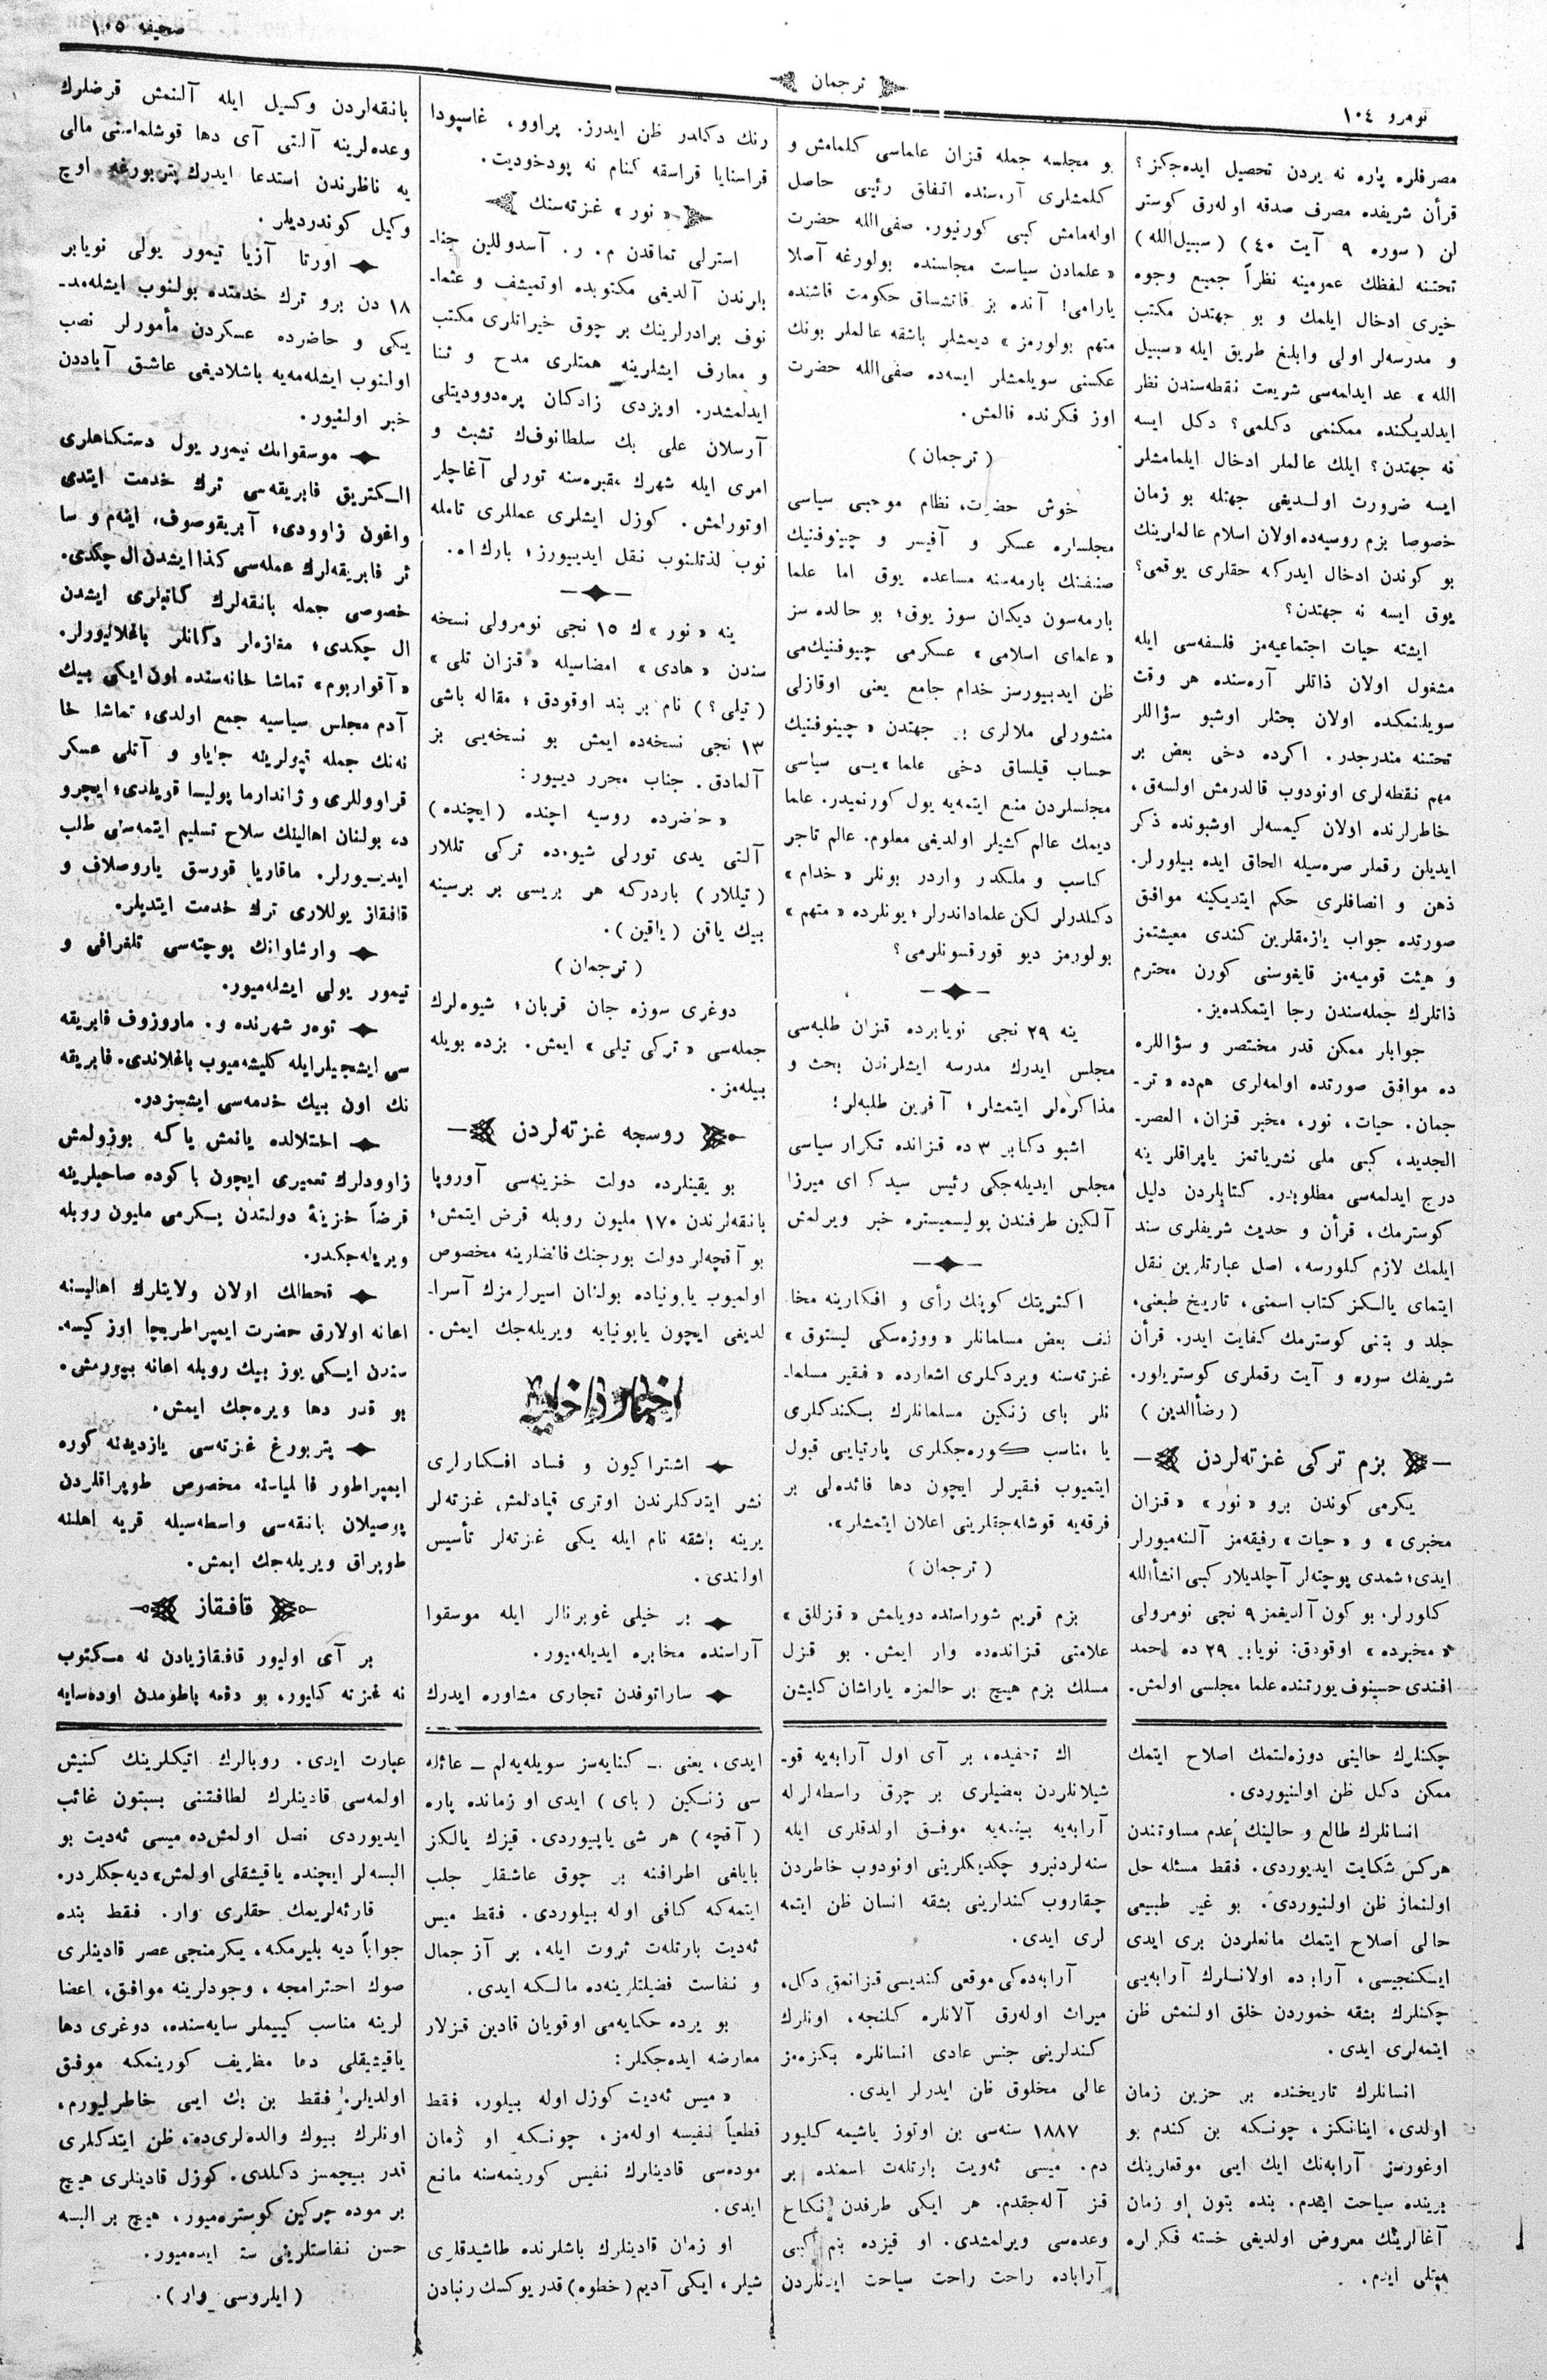 صحیفه ١٠٥
ترجمان
نومرو ١٠٤
مصرفلره پاره نه یردن تحصیل ایده‌جکز؟
قرأن شریفده مصرف صدقه اوله‌رق کوستر
لن (سوره ٩ آیت ٤٠) (سبیل‌الله)
تحتنه لفظك عمومینه نظراً جمیع وجوه
خیری ادخال ایلمك و بو جهتدن مکتب
و مدرسه‌لر اولی وابلغ طریق ایله «سبیل
الله» عد ایدلمه‌سی شریعت نقطه‌سندن نظر
ایدلدیکنده ممکنمی دکلمی؟ دکل ایسه
نه جهتدن؟ ایلك عالملر ادخال ایلمامشلر
ایسه ضرورت اولـدیغی جهتله بو زمان
خصوصا بزم روسیه‌ده اولان اسلام عالملرینك
بو کوندن ادخال ایدرکه حقلری یوقمی؟
یوق ایسه نه جهتدن؟
ایشته حیات اجتماعیه‌مز فلسفه‌سی ایله
مشغول اولان ذاتلر آره‌سنده هر وقت
سویلنمکده اولان بحثلر اوشبو سؤاللر
تحتنه مندرجدر. اکرده دخی بعض بر
مهم نقطه‌لری اونودوب قالدرمش اولسه‌ق،
خاطرلرنده اولان کیمسه‌لر اوشبونده ذکر
ایدیلن رقملر صره‌سیله الحاق ایده بیلورلر.
ذهن و انصافلری حکم ایتدیکینه موافق
صورتده جواب یازمقلرین کندی معیشتمز
و هیئت قومیه‌مز قایغوسنی کورن محترم
ذاتلرك جمله‌سندن رجا ایتمکده‌یز.
جوابلر ممکن قدر مختصر و سؤاللره
ده موافق صورتده اولمه‌لری هم‌ده «تر-
جمان. حیات، نور، مخبر قزان، العصر-
الجدید، کبی ملی نشریاتمز یاپراقلر ینه
درج ایدلمه‌سی مطلوبدر. کتابلردن دلیل
کوسترمك، قرأن و حدیث شریفلری سند
ایلمك لازم کلورسه، اصل عبارتلرین نقل
ایتمای یالـکز کتاب اسمنی، تاریخ طبعنی،
جلد و بتنی کوسترمك کفایت ایدر. قرأن
شریفك سوره و آیت رقملری کوستریلور.
(رضأالدین)
بزم ترکی غزته‌لردن
یکرمی کوندن برو «نور» «قزان
مخبری» و «حیات» رفیقه‌مز آلنه‌میورلر
ایدی؛ شمدی پوچته‌لر آچلدیلار کبی انشأالله
کلورلر. بو کون آلدیغمز ٩ نجی نومرولی
«مخبرده» اوقودق: نویابر ٢٩ ده احمد
افندی حسینوف یورتنده علما مجلسی اولمش.
بو مجلسه جمله قزان علماسی کلمامش و
کلمشلری آره‌سنده اتفاق رئیی حاصل
اوله‌مامش کبی کورنیور. صفی‌الله حضرت
«علمادن سیاست مجلسنده بولورغه آصلا
یارامی! آنده بز قاتنشساق حکومت قاشنده
متهم بولورمز» دیمشلر باشقه عالملر بونك
عکسنی سویلمشلر ایسه‌ده صفی‌الله حضرت
اوز فکرنده قالمش.
(ترجمان)
خوش حضرت، نظام موجبی سیاسی
مجلسلره عسکر و آفیسر و چینوفنیك
صنفنك بارمه‌سنه مساعده یوق اما علما
بارمه‌سون دیکان سوز یوق؛ بو حالده سز
«علمای اسلامی» عسکرمی چینوفنیك‌می
ظن ایدییورسز خدام جامع یعنی اوقازلی
منشورلی ملالری بر جهتدن «چینوفنیك
حساب قیلساق دخی علما»یـی سیاسی
مجلسلردن منع ایتمه‌یه یول کورنمیدر. علما
دیمك عالم کشیلر اولدیغی معلوم. عالم تاجر
کاسب و ملکدر واردر بونلر «خدام»
دکلدرلر لکن علماداندرلر؛ بونلرده «متهم»
بولورمز دیو قورقسونلرمی؟
ینه ٢٩ نجی نویابرده قزان طلبه‌سی
مجلس ایدرك مدرسه ایشلرندن بحث و
مذاکره‌لر ایتمشلر؛ آفرین طلبه‌لر!
اشبو دکابر ٣ ده قزانده تکرار سیاسی
مجلس ایدیله‌جکی رئیس سیدکرای میرزا
آلکین طرفندن پولیسمیستره خبر ویرلمش
اکثریتك کوپنك رأی و افکارینه مخا
لف بعض مسلمانلر «ووزه‌سکی لیستوق»
غزته‌سنه ویردکلری اشعارده «فقیر مسلما-
نلر بای زنکین مسلمانلرك بکندکلری
یا مناسب کوره‌جکلری پارتیایی قبول
ایتمیوب فقیرلر ایچون دها فائده‌لی بر
فرقه‌یه قوشله‌جقلرینی اعلان ایتمشلر».
(ترجمان)
بزم قریم شوراسنده دویلمش «قزللق»
علامتی قزانده‌ده وار ایمش. بو قزل
مسلك بزم هیچ بر حالمزه یاراشان کلیشن
رنك دکلدر ظن ایدرز. پراوو، غاسپودا
قراسنایا قراسقه کنام نه پودخودیت.
«نور» غزته‌سنك
استرلی تماقدن م. ر. آسدوللین جنا-
بلرندن آلدیغی مکتوبده اوتمیشف و عثما-
نوف برادرلرینك بر چوق خیراتلری مکتب
و معارف ایشلرینه همتلری مدح و ثنا
ایدلمشدر. اویزدی زادکان پره‌دوودیتلی
آرسلان علی بك سلطانوف‌ك تشبث و
امری ایله شهرك مقبره‌سنه تورلی آغاچلر
اوتورلمش. کوزل ایشلری عمللری تامله
نوب لذتلنوب نقل ایدییورز؛ بارك اه.
ینه «نور»ك ١٥ نجی نومرولی نسخه
سندن «هادی» امضاسیله «قزان تلی»
(تیلی؟) نام بر بند اوقودق؛ مقاله باشی
١٣ نجی نسخه‌ده ایمش بو نسخه‌یی بز
آلمادق. جناب محرر دییور:
«حاضرده روسیه اچنده (ایچنده)
آلتی یدی تورلی شیوه‌ده ترکی تللار
(تیللار) باردرکه هر بریسی بر برسینه
بیك یاقن (یاقین).
(ترجمان)
دوغری سوزه جان قربان؛ شیوه‌لرك
جمله‌سی «ترکی تیلی» ایمش. بزده بویله
بیله‌مز.
روسجه غزته‌لردن
بو یقینلرده دولت خزینه‌سی آوروپا
بانقه‌لرندن ١٧٠ ملیون روبله قرض ایتمش؛
بو آقچه‌لر دولت بورجنك فائضلرینه مخصوص
اولمیوب یاپونیاده بولنان اسیرلرمزك آسرا-
لدیغی ایچون یاپونیایه ویریله‌جك ایمش.
اخبار داخلیه
اشتراکیون و فساد افـکارلری
نشر ایتدکلرندن اوتری قپادلمش غزته‌لر
یرینه باشقه نام ایله یکی غزته‌لر تأسیس
اولندی.
بر خیلی غوبرنالر ایله موسقوا
آراسنده مخابره ایدیله‌میور.
ساراتوفدن تجاری مشاوره ایدرك
بانقه‌لردن وکسیل ایله آلنمش قرضلرك
وعده‌لرینه آلتی آی دها قوشلماسنی مالی
یه ناظرندن استدعا ایدرك پتربورغه اوچ
وکیل کوندردیلر.
اورتا آزیا تیمور یولی نویابر
١٨ دن برو ترك خدمتده بولنوب ایشله‌مد-
یکی و حاضرده عسکردن مأمورلر نصب
اولنوب ایشله‌مه‌یه باشلادیغی عاشق آباددن
خبر اولنیور.
موسقوانك تیمور یول دستکاهلری
الـکتریق فابریقه‌سی ترك خدمت ایتدی
واغون زاوودی؛ آبریقوصوف، ایثم و سا
ئر فابریقه‌لرك عمله‌سی کذا ایشدن ال چکدی.
خصوصی جمله بانقه‌لرك کاتبلری ایشدن
ال چکدی؛ مغازه‌لر دکانلر باغلانیورلر.
«آقواریوم» تماشا خانه‌سنده اون ایکی بیك
آدم مجلس سیاسیه جمع اولدی؛ تماشا خا
نه‌نك جمله تپولرینه جایاو و آتلی عسکر
قراووللری و ژاندارما پولیسا قویلدی؛ ایچرو
ده بولنان اهالینك سلاح تسلیم ایتمه‌سنی طلب
ایدییورلر. ماقاریا قورسق یاروصلاف و
قافقاز یوللاری ترك خدمت ایتدیلر.
وارشاوانك پوچته‌سی تلغرافی و
تیمور یولی ایشله‌میور.
توه‌ر شهرنده و. ماروزوف فابریقه
سی ایشجیلرایله کلیشه‌میوب باغلاندی. فابریقه
نك اون بیك خدمه‌سی ایشسزدر.
اختلالده یانمش یاکه بوزولمش
زاوودلرك تعمیری ایچون باکوده صاحبلرینه
قرضاً خزینۀ دولتدن یکرمی ملیون روبله
ویریله‌جکدر.
قحطلك اولان ولایتلرك اهالیسنه
اعانه اولارق حضرت ایمپراطریچا اوز کیسه-
سندن ایـکی یوز بیك روبله اعانه بیورمش.
بو قدر دها ویره‌جك ایمش.
پتربورغ غزته‌سی یازدیغنه کوره
ایمپراطور فامیلیاسنه مخصوص طوپراقلردن
پوصیلان بانقه‌سی واسطه‌سیله قریه اهلنه
طوپراق ویریله‌جك ایمش.
قافقاز
بر آی اولیور قافقازیادن نه مـکتوب
نه غزته کلیور، بو دفعه باطومدن اوده‌سایه
چکنلرك حالینی دوزه‌لتمك اصلاح ایتمك
ممکن دکل ظن اولنیوردی.
انسانلرك طالع و حالینك عدم مساوتندن
هرکس شکایت ایدیوردی. فقط مسئله حل
اولنماز ظن اولنیوردی. بو غیر طبیعی
حالی اصلاح ایتمك مانعلردن بری ایدی
ایـکنجیسی، آرابه ده اولانلرك آرابه‌یی
چکنلرك بشقه خموردن خلق اولنمش ظن
ایتمه‌لری ایدی.
انسانلرك تاریخنده بر حزین زمان
اولدی، اینانکز، چونـکه بن کندم بو
اوغورسز آرابه‌نك ایك ایی موقعلرینك
برینده سیاحت ایتدم. بنده بتون او زمان
آغالرینك معروض اولدیغی خسته فکرلره
مبتلی ایدم.
اك تحفیده، بر آی اول آرابه‌یه قو-
شیلانلردن بعضیلری بر چوق واسطه‌لرله
آرابه‌یه بینمه‌یه موفـق اولدقلری ایله
سنه‌لردنبرو چکدیکلرینی اونودوب خاطردن
چیقاروب کندلرینی بشقه انسان ظن ایتمه
لری ایدی.
آرابه‌ده‌کی موقعی کندیسی قزانمق دکل،
میراث اوله‌رق آلانلره کلنجه، اونلرك
کندلرینی جنس عادی انسانلره بکزه‌مز
عالی مخلوق ظن ایدرلر ایدی.
١٨٨٧ سنه‌سی بن اوتوز یاشیمه کلیور
دم. میسی ئه‌ویت بارتله‌ت اسمنده بر
قز آله‌جقدم. هر ایکی طرفدن نکاح
وعده‌سی ویرلمشدی. او قیزده بنم کبی
آراباده راحت راحت سیاحت ایدنلردن
ایدی، یعنی ــ کنایه‌سز سویله‌یه‌لم ــ عائله
سی زنـکین (بای) ایدی او زمانده پاره
(آقچه) هر شی یاپیوردی. قیزك یالکز
بایلغی اطرافنه بر چوق عاشقلر جلب
ایتمه‌که کافی اوله بیلوردی. فقط میس
ئه‌دیت بارتله‌ت ثروت ایله، بر آز جمال
و نفاست فضیلتلرینه‌ده مالـکه ایدی.
بو یرده حکایه‌می اوقویان قادین قزلار
معارضه ایده‌جکلر:
«میس ئه‌دیت کوزل اوله بیلور، فقط
قطعیاً نفیسه اوله‌مز، چونـکه او زمان
موده‌سی قادینلرك نفیس کورینمه‌سنه مانع
ایدی.
او زمان قادینلرك باشلرنده طاشیدقلری
شیلر، ایکی آدیم (خطوه) قدر یوکسك رنبادن
عبارت ایدی. روبالرك اتیکلرینك کنیش
اولمه‌سی قادینلرك لطافتنی بسبتون غائب
ایدیوردی نصل اولمش‌ده میسی ئه‌دیت بو
البسه‌لر ایچنده یاقیشقلی اولمش» دیه‌جکلردر.
قارئه‌لریمك حقلری وار. فقط بنده
جواباً دیه بلیرمکه، یکرمنجی عصر قادینلری
صوك احترامجه، وجودلرینه موافق، اعضا
لرینه مناسب کییملر سایه‌سنده، دوغری دها
یاقیشقلی دها مظریف کورینمکه موفق
اولدیلر. فقط بن پك ایی خاطرلیورم،
اونلرك بیوك والده‌لری‌ده، ظن ایتدکلری
قدر بیچمسز دکلدی. کوزل قادینلری هیچ
بر موده چرکین کوستره‌میور، هیچ بر البسه
حسن نفاستلرینی ستر ایده‌میور.
(ایلروسی وار).